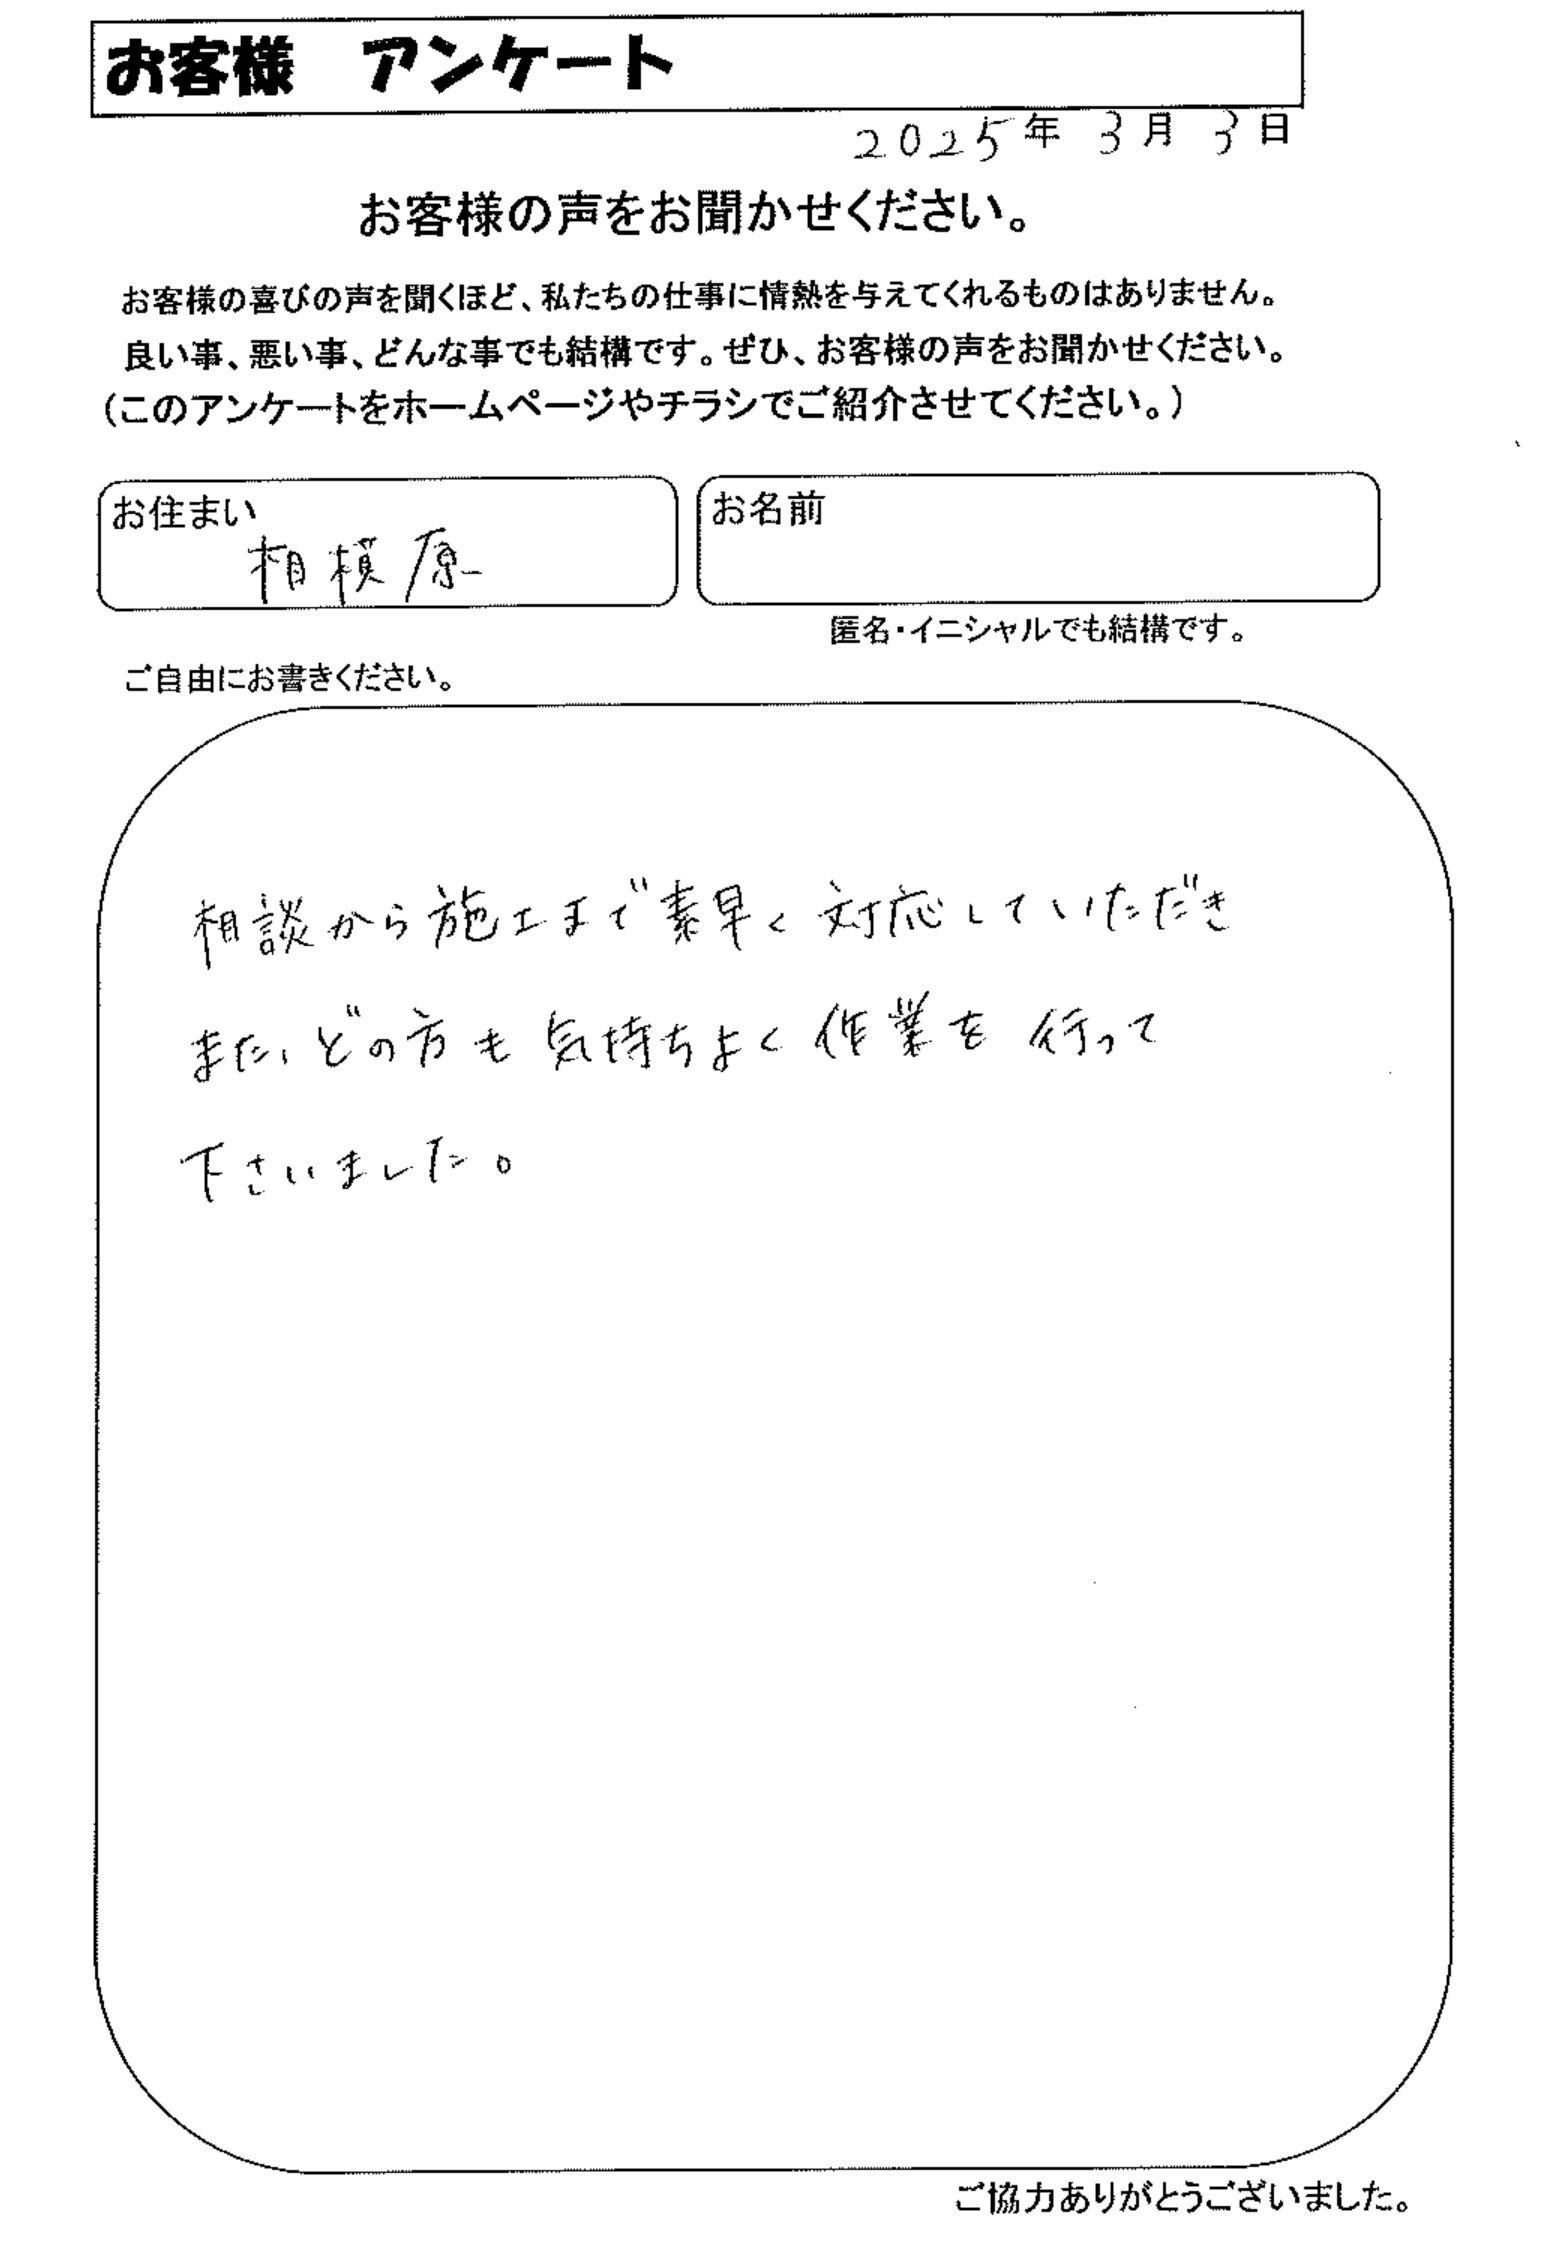 お客様　アンケート
2025年 3月 3日
お客様の声をお聞かせください。
お客様の喜びの声を聞くほど、私たちの仕事に情熱を与えてくれるものはありません。
良い事、悪い事、どんな事でも結構です。ぜひ、お客様の声をお聞かせください。
(このアンケートをホームページやチラシでご紹介させてください。)
お住まい
相模原
お名前
匿名・イニシャルでも結構です。
ご自由にお書きください。
相談から施工まで素早く対応していただき
また、どの方も気持ちよく作業を行って
下さいました。
ご協力ありがとうございました。